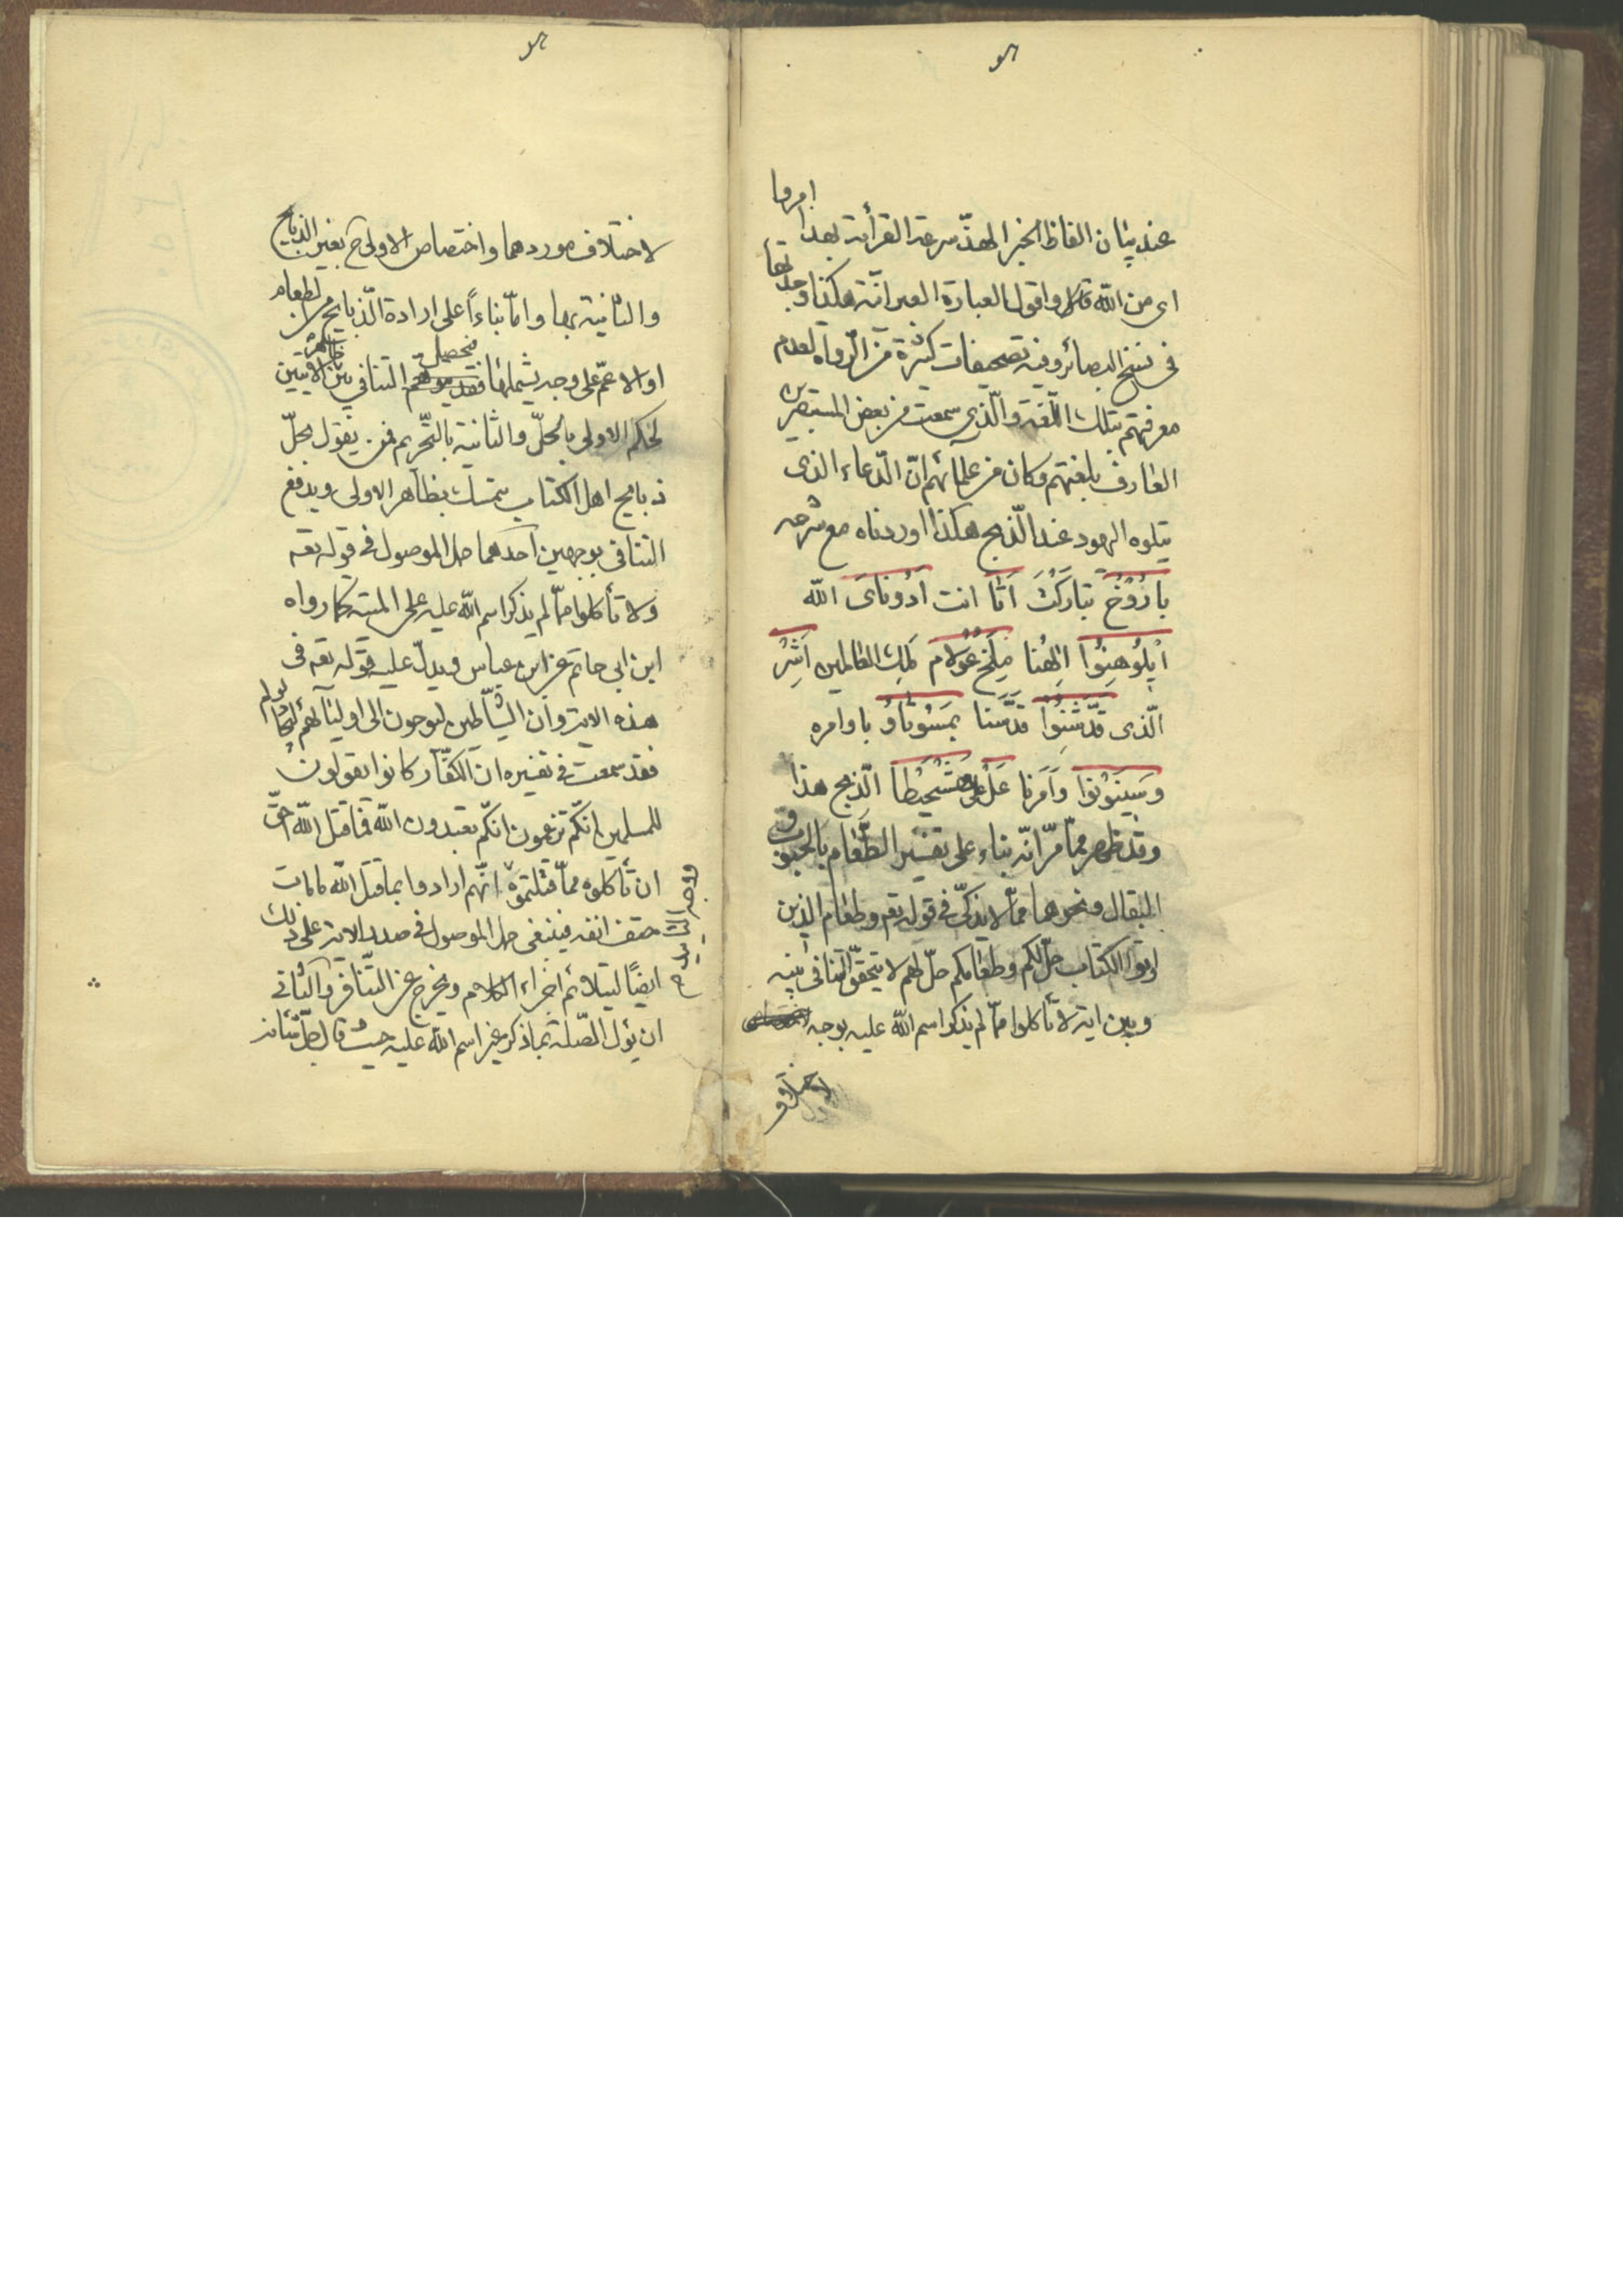 هو
عند بيان الفاظ الخبر الهذّ سرعة القرائة بهذا امروا
اى من الله قالوا واقول العبارة العبرانيّة هكذا وجدتها
فى نسخ البصائر وفيه تصحيفات كثيرة من الرّواة لعدم
معرفتهم بتلك اللّغة والّذى سمعت من بعض المستبصرين
العارف بلغتهم وكان من علمائهم انّ الدّعاء الذى
يتلوه اليهود عند الذّبح هكذا اوردناه مع شرحه
بارُوُخ تبارَكْتَ اَتّا انت اَدُوناىَ الله
ايْلُوُهِنُوُا اِلٰهُنا مِلِخ عُوُلام مَلِك العالمين اَشِرْ
الّذى قدّشَنُوُا قدَّسَنا بمسُوتاوُ باوامره
وَسِيَنوُنوُا وَاَمَرَنا عَلْ على هَشّحِيْطا الّذبح هذا
وقد ظهر ممّا مرّ انّه بناء على تفسير الطّعام بالحبوب و
البقال ونحوهما ممّا لا يذكّى فى قوله تعه وطعام الذين
اوتوا الكتاب حلّ لكم وطعامكم حلّ لهم لا يتحقّق التنافى بينه
وبين اية لا تأكلوا ممّا لم يذكر اسم الله عليه بوجه
لاختلاف
هو
لاختلاف موردهما واختصاص الاولى ح بغير الذبايح
والثانية بها وامّا بناءً على ارادة الذّبايح من الطعام
او الاعمّ على وجه يشملها فيحصل التنافى بين ظاهر الايتين
لحكم الاولى بالحلّ والثانية بالتّحريم فمن يقول بحلّ
ذبايح اهل الكتاب يتمسك بظاهر الاولى ويدفع
التنافى بوجهين احدهما حمل الموصول فى قوله تعه
ولا تأكلوا ممّا لم يذكر اسم الله عليه على الميته كما رواه
ابن ابى حاتم عن ابن عباس ويدلّ عليه قوله تعه فى
هذه الاية وان الشّياطين ليوحون الى اوليائهم ليجادلوكم
فقد سمعت فى تفسيره ان الكفّار كانوا يقولون
للمسلمين انكم تزعمون انكم تعبدون الله فما قتل الله احقّ
ان تأكلوه ممّا قتلتموه انّهم ارادوا بما قتل الله ما مات
حتف انفه فينبغى حمل الموصول فى صدر الاية على ذلك
ايضاً ليتلائم اجزاء الكلام ويخرج عن التّنافر والثّانى
ان يؤل الصّلة بما ذكر غير اسم الله عليه حيث قال جلّ شأنه